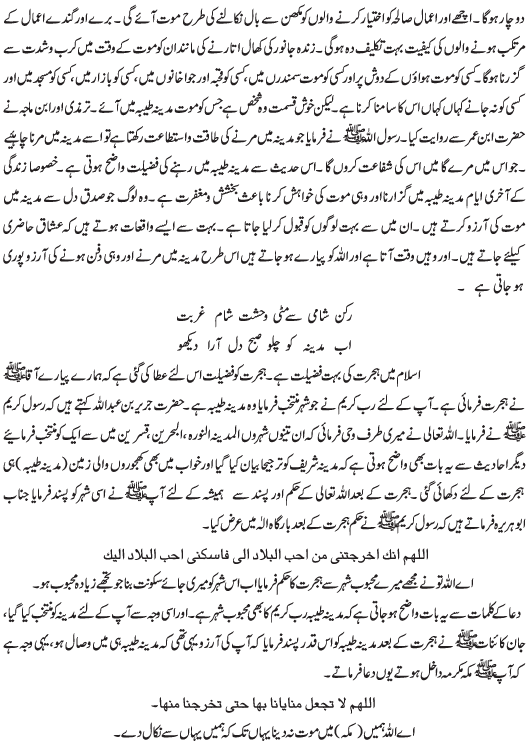 دوچار ہوگا ۔ اچھے اور اعمال صالحہ کو اختیار کرنے والوں کو مکھن سے بال نکالنے کی طرح موت آئے گی ۔ برے اور گندے اعمال کے
مرتکب ہونے والوں کی کیفیت بہت تکلیف دہ ہوگی ۔ زندہ جانور کی کھال اتارنے کی مانند ان کو موت کے وقت میں کرب وشدت سے
گزرنا ہوگا ۔ کسی کو موت ہواؤں کے دوش پر اور کسی کو سمندر میں، کسی کو قحبہ اور جواخانوں میں، کسی کو بازار میں، کسی کو مسجد میں اور
کسی کو نہ جانے کہاں کہاں اس کا سامنا کرنا ہے ۔ لیکن خوش قسمت وہ شخص ہے جس کو موت مدینہ طیبہ میں آئے ۔ ترمذی اور ابن ماجہ نے
حضرت ابن عمر سے روایت کیا ۔ رسول اللہ ﷺ نے فرمایا جو مدینہ میں مرنے کی طاقت و استطاعت رکھتا ہے تو اسے مدینہ میں مرنا چاہیئے
۔ جو اس میں مرے گا میں اس کی شفاعت کروں گا ۔ اس حدیث سے مدینہ طیبہ میں رہنے کی فضیلت واضح ہوتی ہے ۔ خصوصا زندگی
کے آخری ایام مدینہ طیبہ میں گزارنا اور وہی موت کی خواہش کرنا باعث بخشش و مغفرت ہے ۔ وہ لوگ جو صدق دل سے مدینہ میں
موت کی آرزو کرتے ہیں ۔ ان میں سے بہت لوگوں کو قبول کر لیا جاتا ہے ۔ بہت سے ایسے واقعات ہوتے ہیں کہ عشاق حاضری
کیلئے جاتے ہیں ۔ اور وہیں وقت آتا ہے اور اللہ کو پیارے ہو جاتے ہیں اس طرح مدینہ میں مرنے اور وہی دفن ہونے کی آرزو پوری
ہو جاتی ہے ۔
رکن شامی سے مٹی وحشت شام غربت
اب مدینہ کو چلو صبح دل آرا دیکھو
اسلام میں ہجرت کی بہت فضیلت ہے ۔ ہجرت کو فضیلت اس لئے عطا کی گئی ہے کہ ہمارے پیارے آقا ﷺ
نے ہجرت فرمائی ہے ۔ آپ کے لئے رب کریم نے جو شہر منتخب فرمایا وہ مدینہ طیبہ ہے ۔ حضرت جریر بن عبداللہ کہتے ہیں کہ رسول کریم
ﷺ نے فرمایا ۔ اللہ تعالی نے میری طرف وحی فرمائی کہ ان تینوں شہروں المدینہ النورہ، البحرین، قسرین میں سے ایک کو منتخب فرمایئے
دیگر احادیث سے یہ بات بھی واضح ہوتی ہے کہ مدینہ شریف کو ترجیحا بیان کیا گیا اور خواب میں بھی کھجوروں والی زمین (مدینہ طیبہ) ہی
ہجرت کے لئے دکھائی گئی ۔ ہجرت کے بعد اللہ تعالی کے حکم اور پسند سے ہمیشہ کے لئے آپ ﷺ نے اسی شہر کو پسند فرمایا جناب
ابو ہریرہ فرماتے ہیں کہ رسول کریم ﷺ نے حکم ہجرت کے بعد بارگاہ الہ میں عرض کیا ۔
اللهم انك اخرجتنی من احب البلاد الی فاسكنی احب البلاد اليك
اے اللہ تو نے مجھے میرے محبوب شہر سے ہجرت کا حکم فرمایا اب اس شہر کو میری جائے سکونت بنا جو تجھے زیادہ محبوب ہو ۔
دعا کے کلمات سے یہ بات واضح ہو جاتی ہے کہ مدینہ طیبہ رب کریم کا بھی محبوب شہر ہے ۔ اور اسی وجہ سے آپ کے لئے مدینہ کو منتخب کیا گیا،
جان کائنات ﷺ نے ہجرت کے بعد مدینہ طیبہ کو اس قدر پسند فرمایا کہ آپ کی آرزو یہی تھی کہ مدینہ طیبہ ہی میں وصال ہو، یہی وجہ ہے
کہ آپ ﷺ مکہ مکرمہ داخل ہوتے یوں دعا فرماتے ۔
اللهم لا تجعل منايانا بها حتی تخرجنا منها۔
اے اللہ ہمیں (مکہ) میں موت نہ دینا یہاں تک کہ ہمیں یہاں سے نکال دے ۔